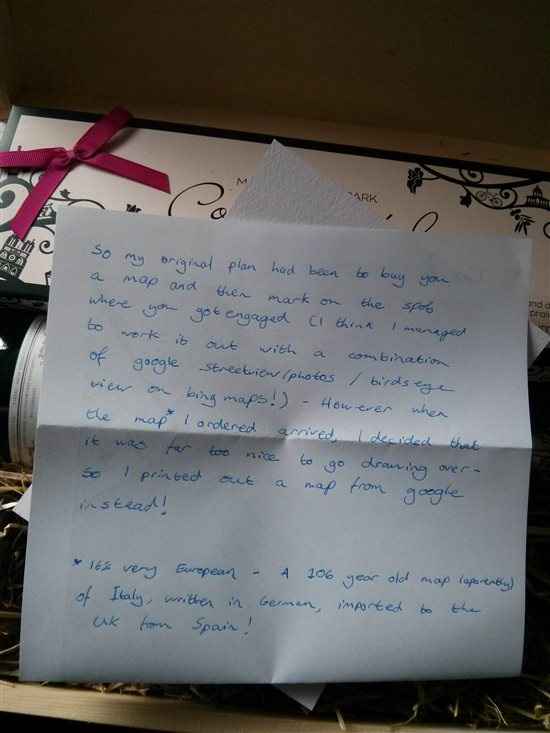 M
ARK
Co
and a
So my original plan had been to buy you
a map and then mark on the spot
where you got engaged (I think I managed
to work it out with a combination
of google streetview/photos / birdseye
view on bing maps!) - However when
the map* I ordered arrived, I decided that
it was far too nice to go drawing over -
So I printed out a map from google
instead!
* It's very European - A 106 year old map (aparently)
of Italy, written in German, imported to the
UK from Spain!